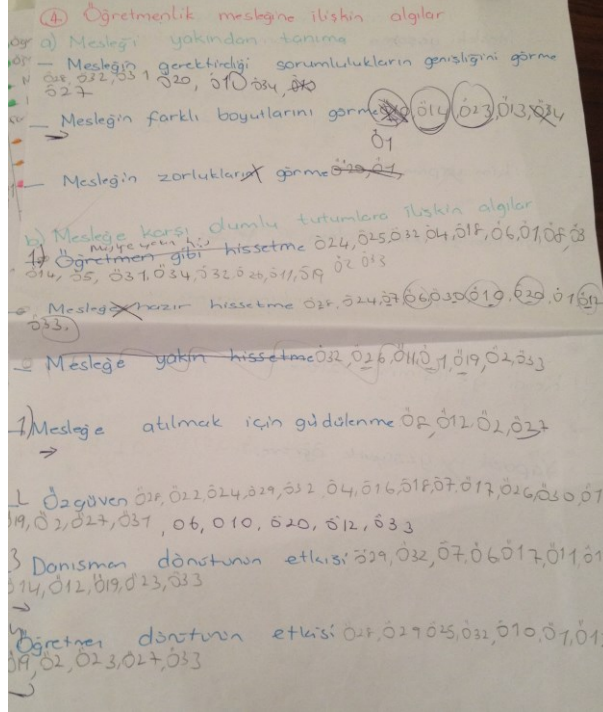 4. Öğretmenlik mesleğine ilişkin algılar
a) Mesleği yakından tanıma
— Mesleğin gerektirdiği sorumlulukların genişliğini görme
Ö28, Ö32, Ö31 Ö20, Ö10 Ö34,
Ö27
— Mesleğin farklı boyutlarını görme Ö14, Ö23, Ö13, Ö34
Ö1
— Mesleğin zorlukların görme Ö20, Ö1,
b) Mesleğe karşı olumlu tutumlara ilişkin algılar
1 Öğretmen gibi hissetme Ö24, Ö25, Ö32 Ö4, Ö18, Ö6, Ö1, Ö8, Ö3
Ö14, Ö5, Ö31, Ö34, Ö32, Ö26, Ö11, Ö19 Ö2 Ö33
Mesleğe hazır hissetme Ö28, Ö24, Ö7 Ö6 Ö30 Ö19, Ö20, Ö1 Ö12
Ö33.
— Mesleğe yakın hissetme Ö32, Ö26, Ö11, Ö1, Ö19, Ö2, Ö33
1) Mesleğe atılmak için güdülenme Ö8, Ö12 Ö2, Ö27
Özgüven Ö28, Ö22, Ö24, Ö29, Ö32, Ö4, Ö16, Ö18, Ö7, Ö17, Ö26, Ö30, Ö1
Ö19, Ö2, Ö27, Ö31, Ö6, Ö10, Ö20, Ö12, Ö33
3 Danışman dönütünün etkisi Ö29, Ö32, Ö7, Ö6 Ö17, Ö11, Ö1
Ö14, Ö12, Ö19, Ö23, Ö33
Öğretmen dönütünün etkisi Ö28, Ö29 Ö25, Ö32, Ö10, Ö1, Ö1
Ö19, Ö2, Ö23, Ö27, Ö33